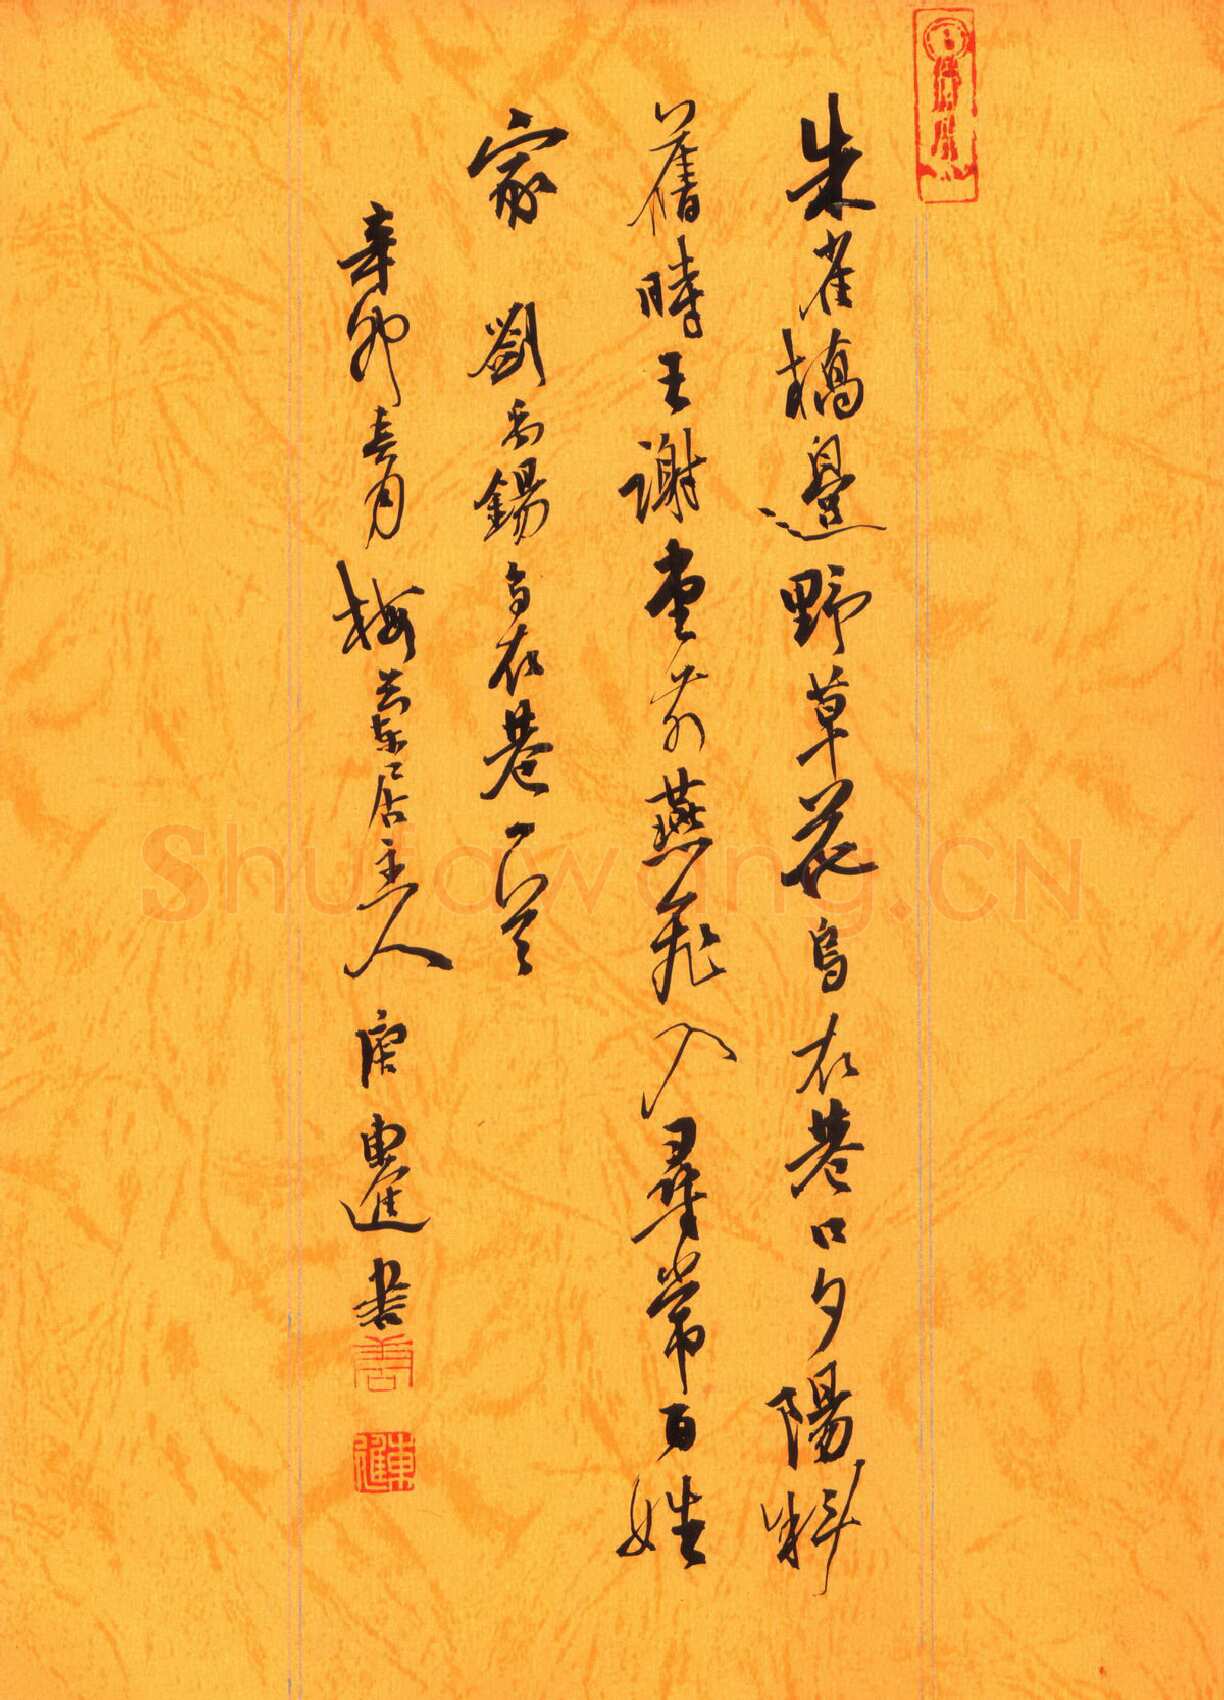 朱雀橋邊野草花烏衣巷口夕陽斜
舊時王謝堂前燕飛入尋常百姓
家 劉禹錫烏衣巷一首
辛卯春月梅蘭居主人唐東進書
唐
東進
Shufawang.CN